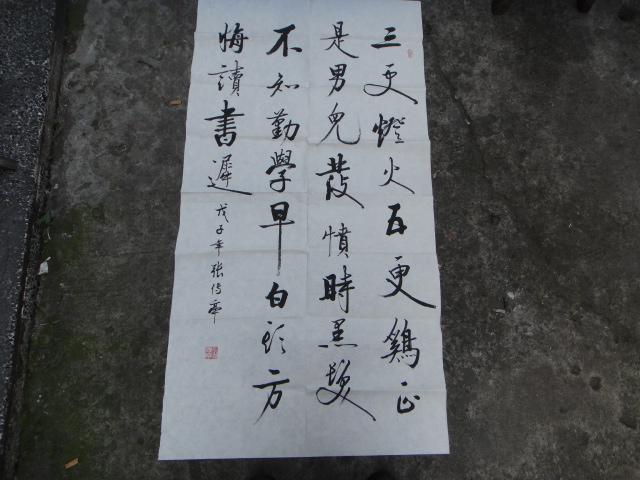 三更燈火五更鷄正
是男兒發憤時黑髮
不知勤學早白頭方
悔讀書遲
戊子年張傳